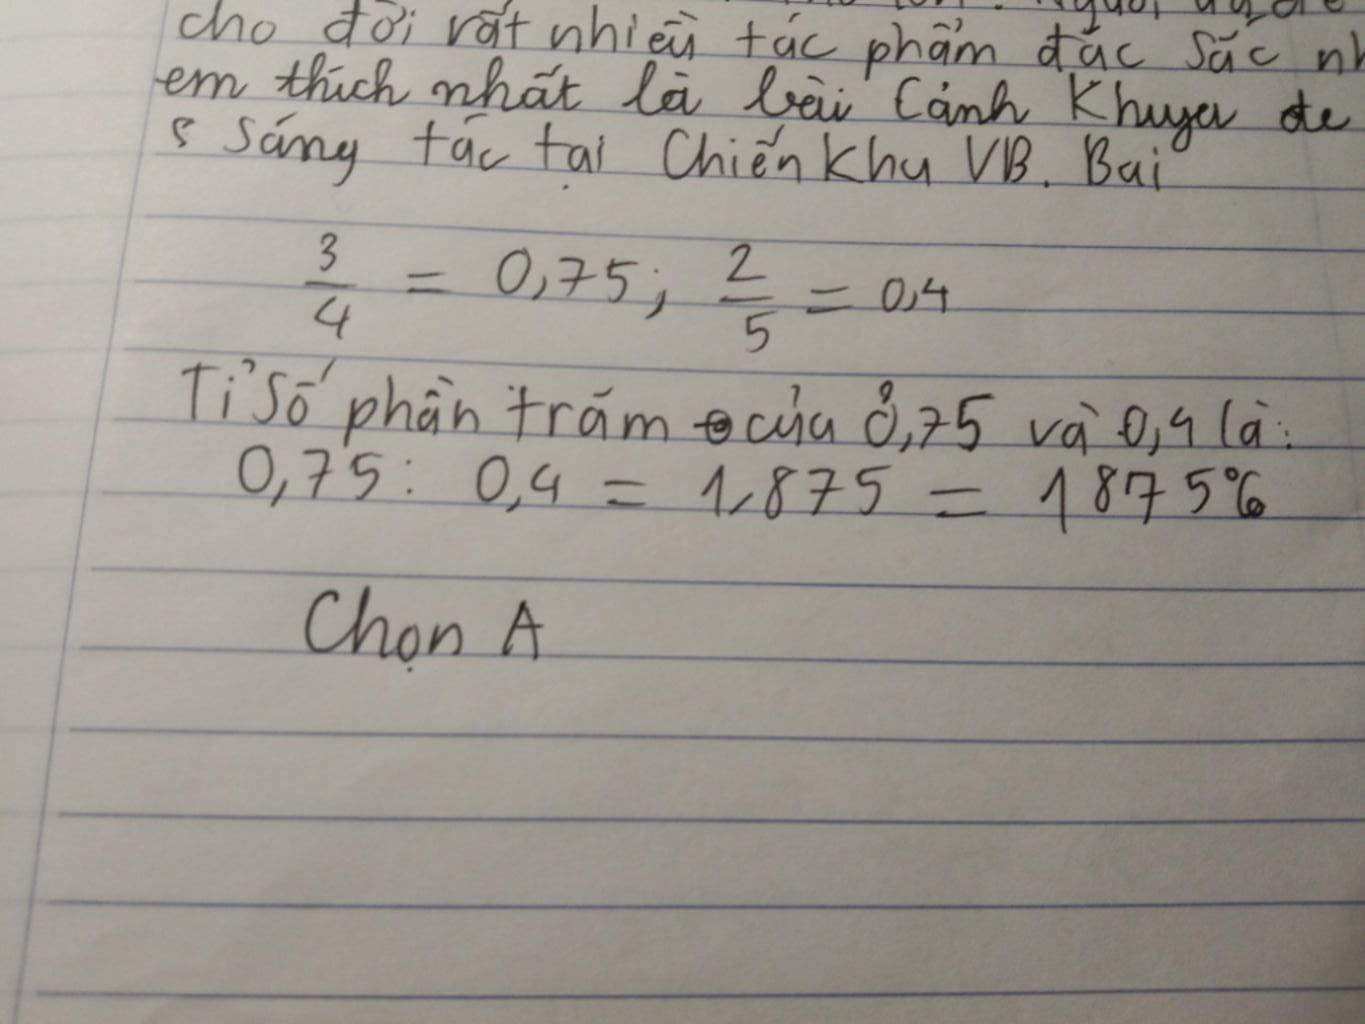 cho đời rất nhiều tác phẩm đặc sắc
em thích nhất là bài Cảnh Khuya
sáng tác tại Chiến Khu VB. Bai
3/4 = 0,75; 2/5 = 0,4
Tỉ số phần trăm của 0,75 và 0,4 là:
0,75: 0,4 = 1,875 = 1875%
Chọn A